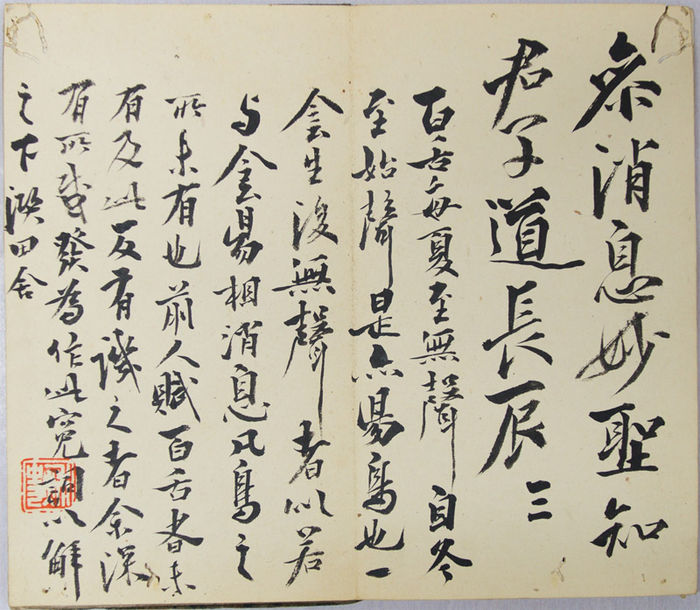 参消息妙聖知
君子道長辰 三
百舌每夏至無聲自冬
至始聲是亦昜鳥也一
侌生後無聲者似若
与侌昜相消息凡鳥之
所未有也前人賦百舌者未
有及此反有譏之者余深
有所感發為作此寃詞以解
之下潠田舍